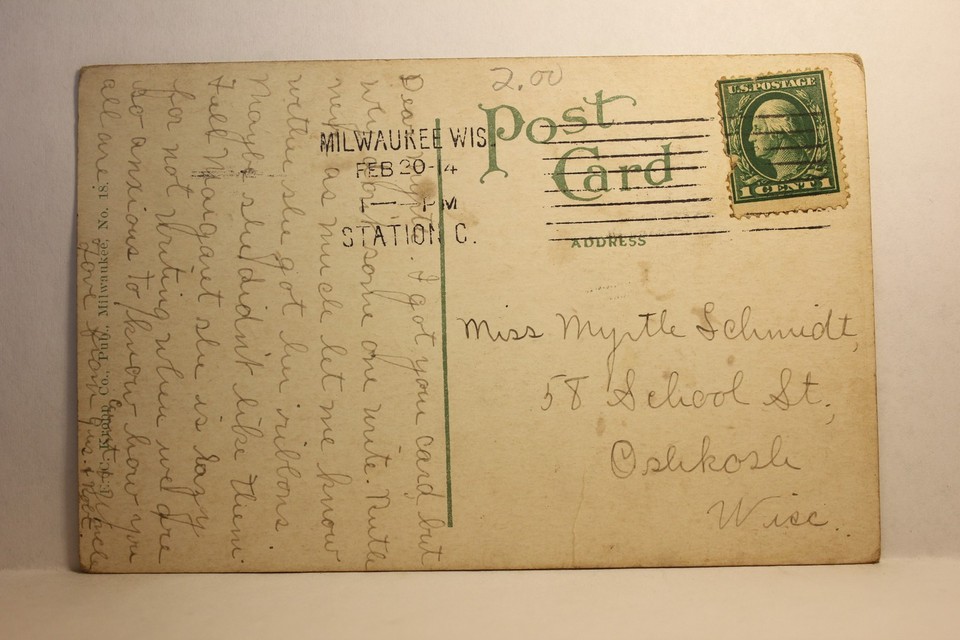 2.00
Post
Card
U.S. POSTAGE
1 CENT 1
MILWAUKEE WIS.
FEB 20-14
1 - PM
STATION C.
ADDRESS
Miss Myrtle Schmidt,
58 School St.,
Oshkosh
Wisc.
Dear Myrtle. I got your card, but
why some one write. Ruth
as much let me know
wether she got her ribbons
Maybe she didn't like them.
Tell Margaret she is lazy
for not writing when we are
so anxious to know how you
all are.
Love from
Co., Pub., Milwaukee, No. 18.